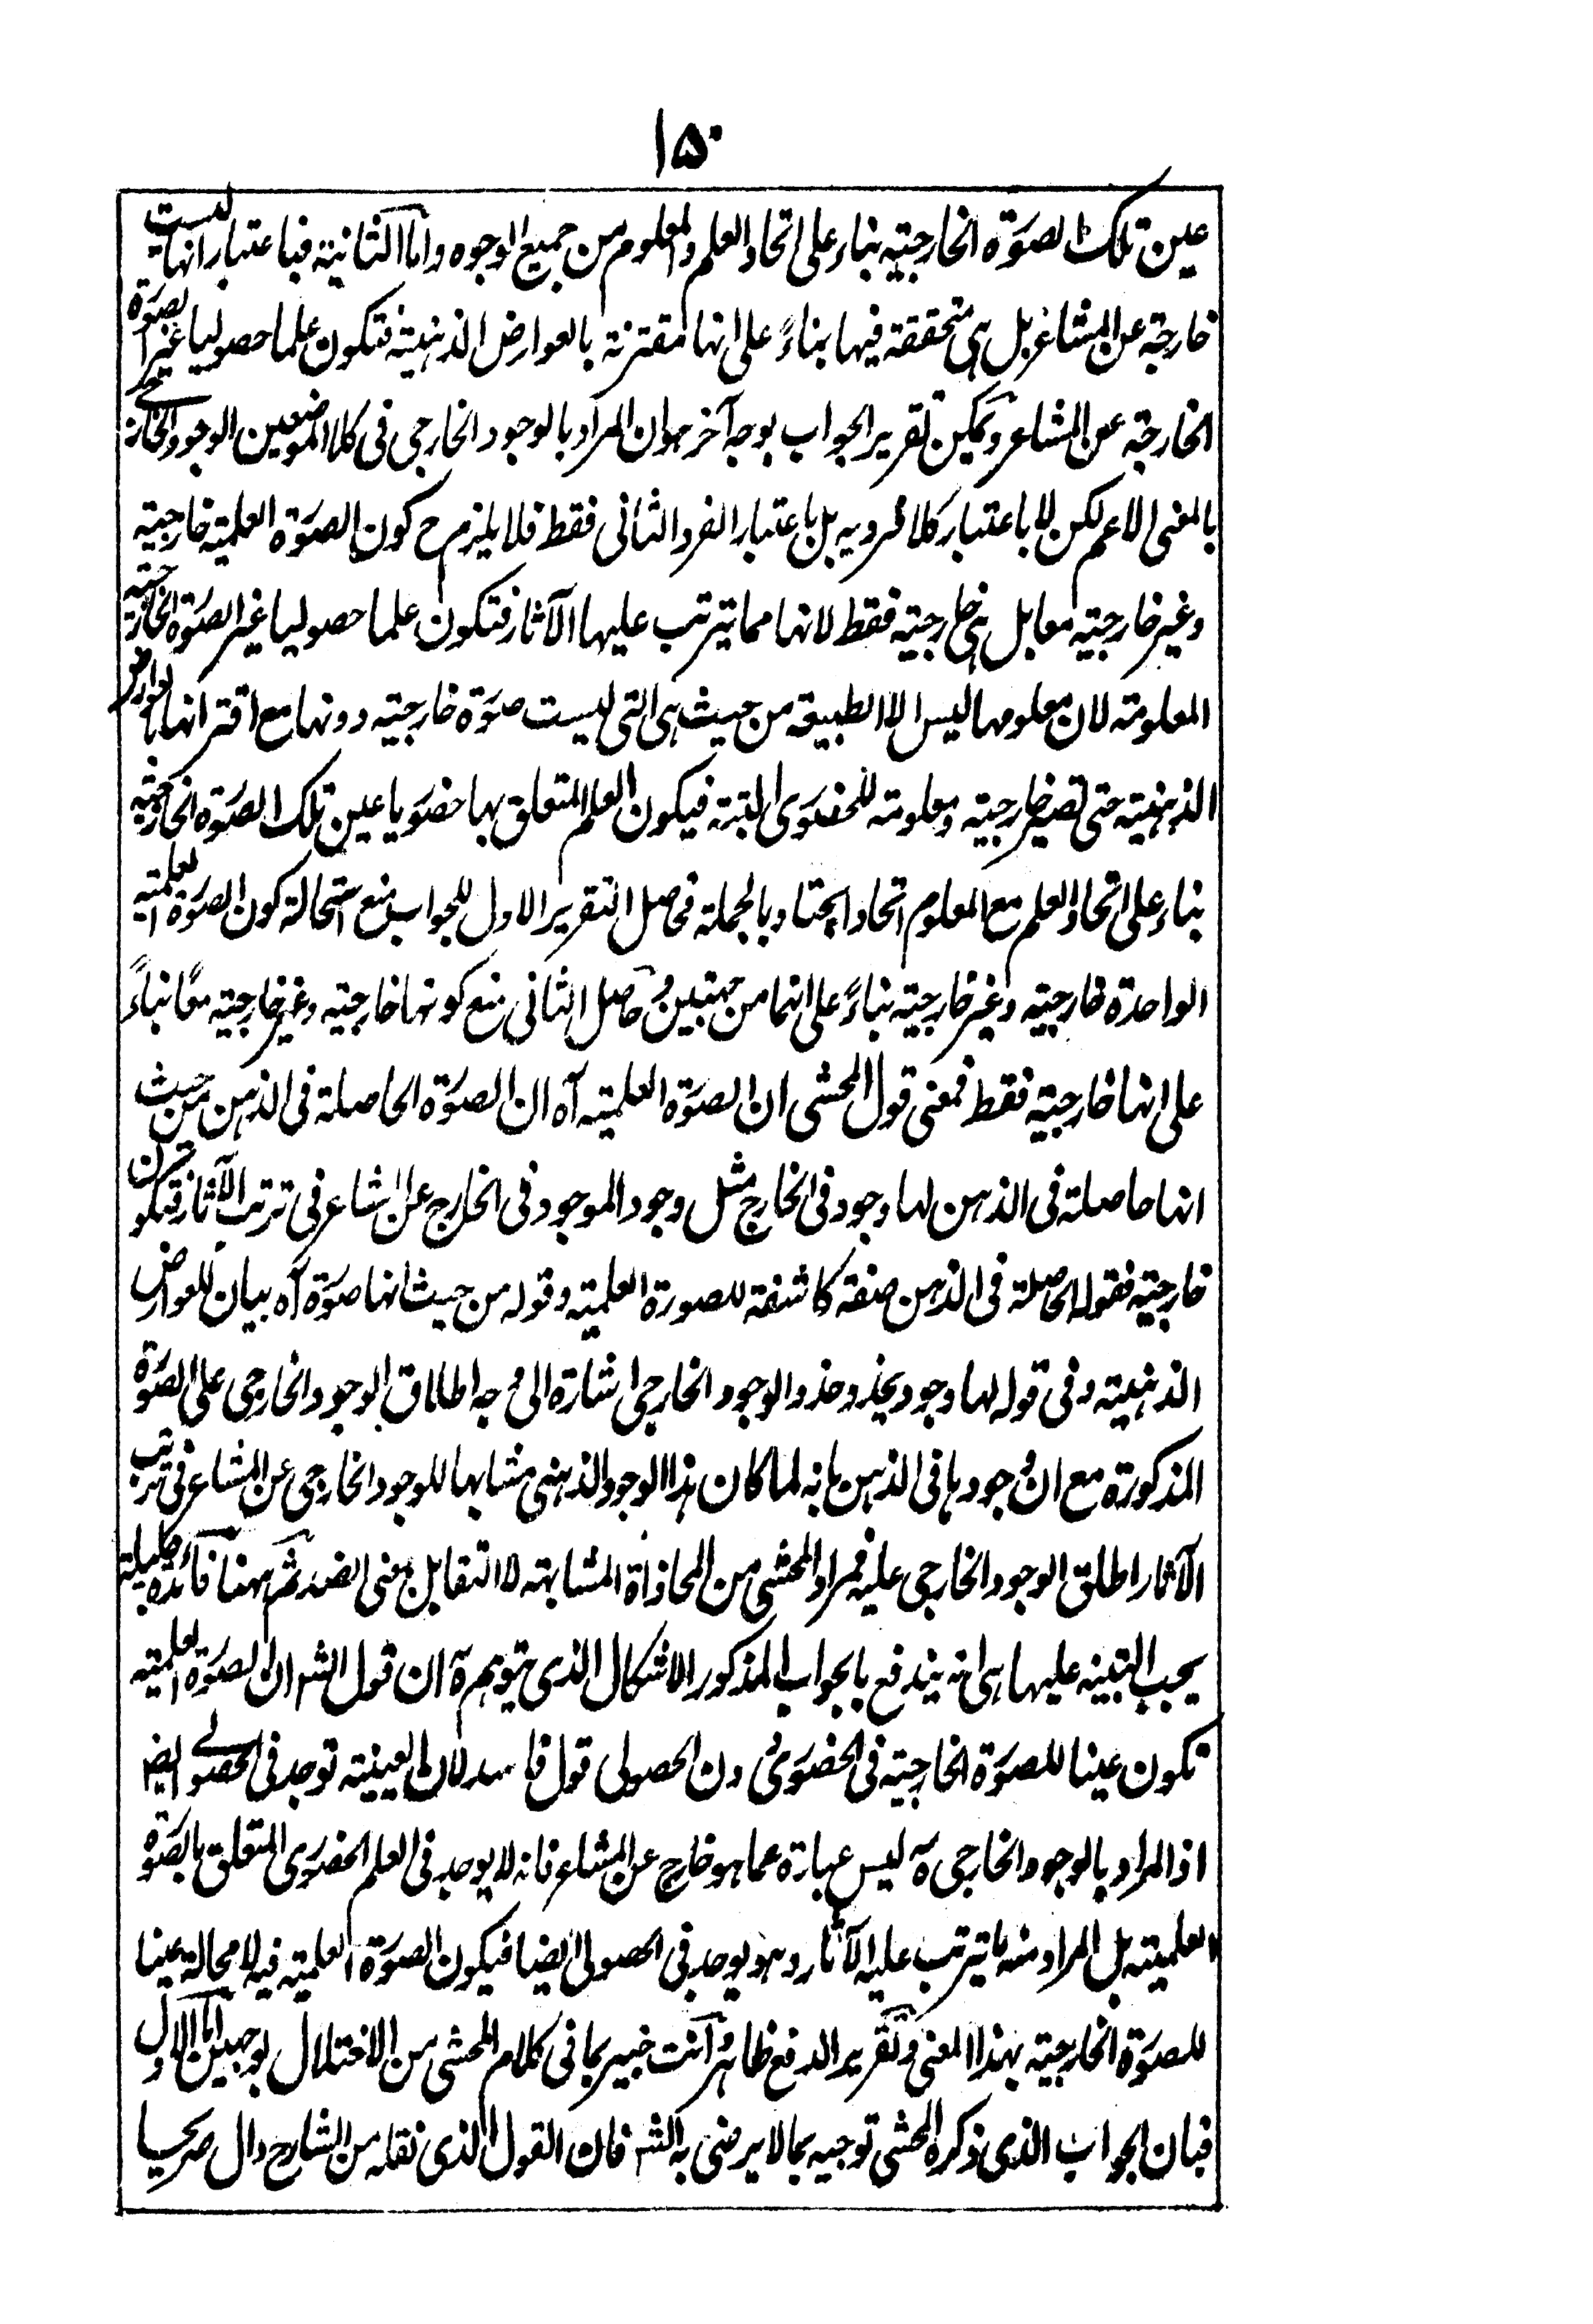 ۱۵۰
عين تلك الصورة الخارجية بناء على اتحاد العلم والمعلوم من جميع الوجوه واما الثانية فباعتبار انها ليست
خارجة عن المشاعر بل هي متحققة فيها بناءً على انها مقترنة بالعوارض الذهنية فتكون علما حصوليا غير الصورة
الخارجة عن المشاعر ويمكن تقرير الجواب بوجه آخر هو ان المراد بالوجود الخارجي في كلا الموضعين الوجود الخارجي
بالمعنى الاعم لكن لا باعتبار كلا فرديه بل باعتبار الفرد الثاني فقط فلا يلزم ح كون الصورة العلمية خارجية
وغير خارجية معا بل هي خارجية فقط لانها مما يترتب عليها الآثار فتكون علما حصوليا غير الصورة الخارجية
المعلومة لان معلومها ليس الا الطبيعة من حيث هي التي ليست صورة خارجية دونها مع اقترانها بالعوارض
الذهنية حتى تصير خارجية ومعلومة للحضوري البتة فيكون العلم المتعلق بها حضوريا عين تلك الصورة الخارجية
بناء على اتحاد العلم مع المعلوم اتحادا بحتا وبالجملة فحاصل التقرير الاول للجواب منع استحالة كون الصورة العلمية
الواحدة خارجية وغير خارجية بناءً على انهما من جهتين وحاصل الثاني منع كونها خارجية وغير خارجية معًا بناءً
على انها خارجية فقط فمعنى قول المحشى ان الصورة العلمية آه ان الصورة الحاصلة في الذهن من حيث
انها حاصلة في الذهن لها وجود في الخارج مثل وجود الموجود في الخارج عن المشاعر في ترتب الآثار فتكون ح
خارجية فقوله الحاصلة في الذهن صفة كاشفة للصورة العلمية وقوله من حيث انها صورة آه بيان للعوارض
الذهنية وفي قوله لها وجود يحذو حذو الوجود الخارجي اشارة الى وجه اطلاق الوجود الخارجي على الصورة
المذكورة مع ان وجودها في الذهن بانه لما كان هذا الوجود الذهني مشابها للوجود الخارجي عن المشاعر في ترتب
الآثار اطلق الوجود الخارجي عليه فمراد المحشى من المحاذاة المشابهة لا التقابل بمعنى الضد ثم ههنا فائدة جليلة
يجب التنبيه عليها هي انه يندفع بالجواب المذكور الاشكال الذي يتوهم ان قول الشه ان الصورة العلمية
تكون عينا للصورة الخارجية في الحضوري دون الحصولي قول فاسد لان العينية توجد في الحصولي ايضا
اذ المراد بالوجود الخارجي آه ليس عبارة عما هو خارج عن المشاعر فانه لا يوجد في العلم الحضوري المتعلق بالصورة
العلمية بل المراد منه ما يترتب عليه الآثار وهو يوجد في الحصولي ايضا فيكون الصورة العلمية فيه لا محالة عينا
للصورة الخارجية بهذا المعنى وتقرير الدفع ظاهر وانت خبير بما في كلام المحشى من الاختلال بوجهين اما الاول
فبان الجواب الذي ذكره المحشى توجيه بما لا يرضى به الشه فان القول الذي نقله من الشارح دال صريحا